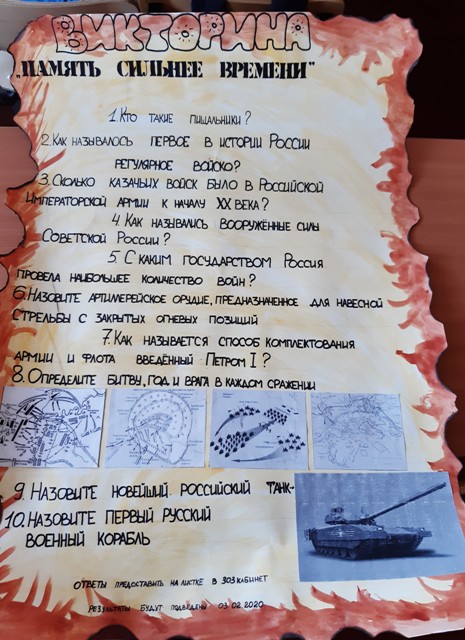 ВИКТОРИНА
„ПАМЯТЬ СИЛЬНЕЕ ВРЕМЕНИ"
1. Кто такие пищальники?
2. Как называлось первое в истории России
регулярное войско?
3. Сколько казачьих войск было в Российской
Императорской армии к началу XX века?
4. Как назывались вооружённые силы
Советской России?
5. С каким государством Россия
провела наибольшее количество войн?
6. Назовите артиллерейское орудие, предназначенное для навесной
стрельбы с закрытых огневых позиций
7. Как называется способ комплектования
армии и флота введённый Петром I?
8. Определите битву, год и врага в каждом сражении
9. Назовите новейший российский танк-
10. Назовите первый русский
военный корабль
Ответы предоставить на листке в 303 кабинет
Результаты будут подведены 03.02.2020